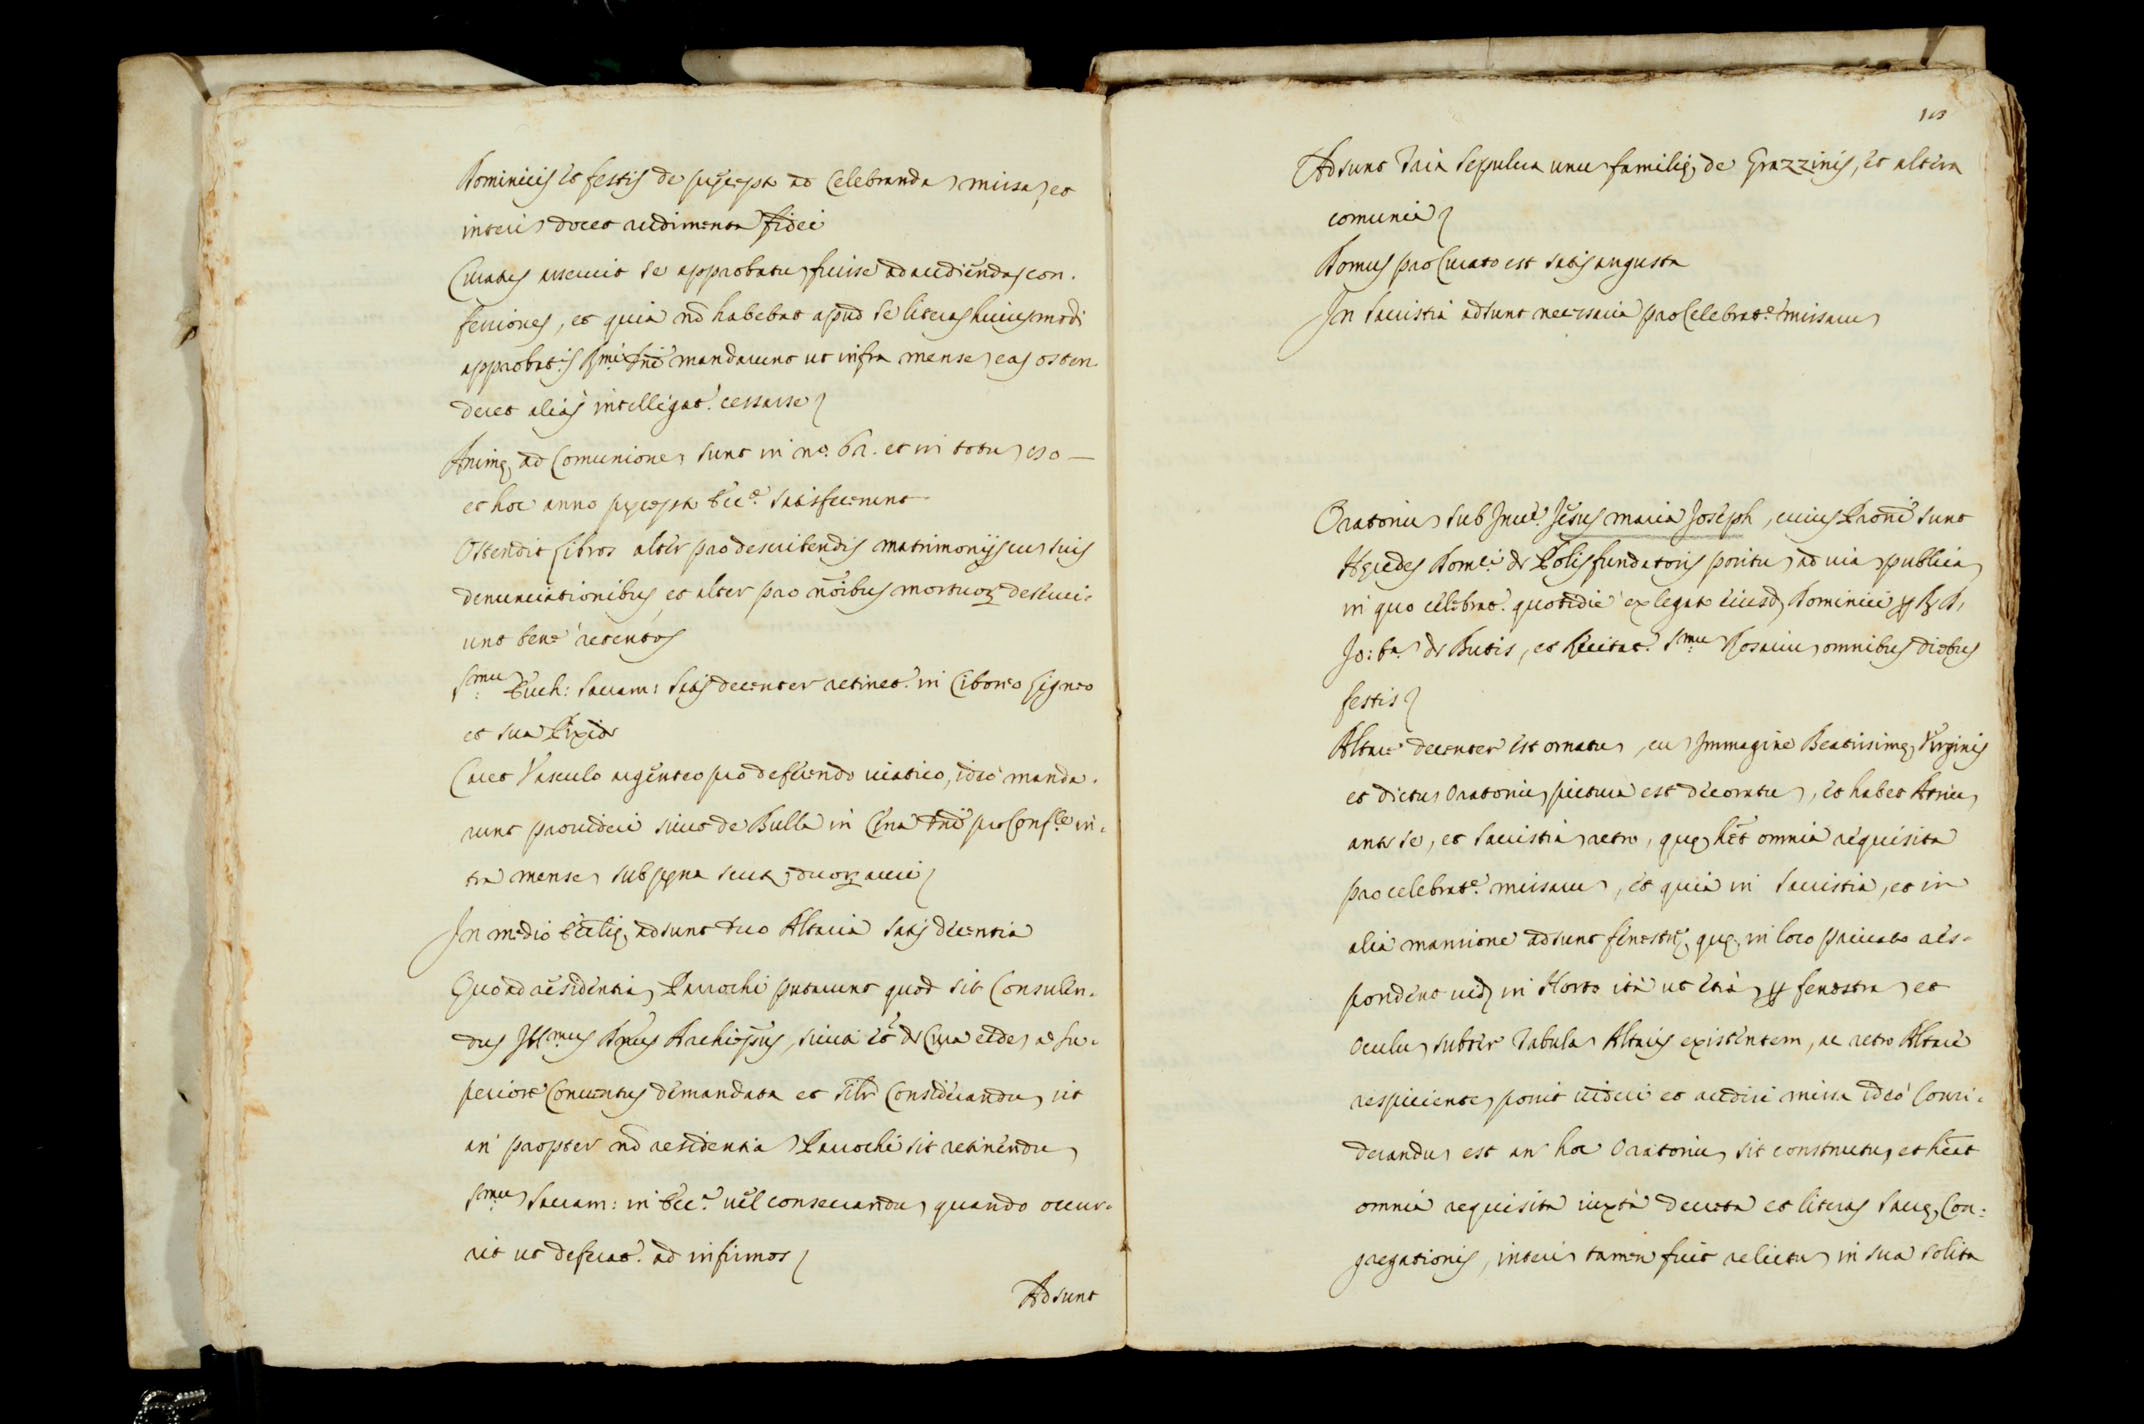 Dominicis et festis de precept.º ad Celebrandã missã, et
interĩ docet rudimenta fidei
Curatus asseruit se approbatũ fuisse ad audiendas con-
fessiones, et quia nõ habebat apud se literas huiusmodi
approbat.is R.mi Dñi mandarunt ut infra mensẽ eas osten-
deret aliàs intelligat.r cessasse
Animę ad Comunionẽ sunt in n.º 62. et in totũ 130 —
et hoc anno precepto Ecc.e satisfecerunt
Ostendit libros alter pro describendis matrimonijs cũ suis
denunciationibus et alter pro nõibus mortuoꝝ descri-
unt bene retentos
S.mũ Euch: Sacram: satis decenter retinet.r in Ciborio ligneo
et sua Pixide
Caret Vasculo argenteo pro deferendo viatico, ideò manda-
runt provideri sicut de Bulla in Cęna Dñi pro Conf.le in-
tra mensẽ sub pęna scutoꝝ duoꝝ auri
In medio Ecclię adsunt duo Altaria satis decentia
Quo ad residentiã Parrochi putarunt quod sit Consulen-
dus Ill.mus Dñus Archiepũs, sicuti et de Cura eidẽ a Su-
periore Conventus demandata et sił Considerandũ sit
an propter nõ residentiã Parrochi sit retinendũ
S.mũ Sacram: in Ecc.a vel conservandũ quando occur-
rit ut deferat.r ad infirmos
Adsunt
113
Adsunt Tria Sepulcra unũ familię de Grazzinis, et altera
comunia
Domus pro Curato est satis angusta
In Sacristia adsunt necessaria pro Celebrat.e missarũ
Oratoriũ sub Invoc.e Jesus maria Joseph, cuius Patroni sunt
Hęredes Dom.ci de Polis fundatoris positũ ad viã publicã
in quo celebrat.r quotidie ex legato eiusdẽ Dominici ꝑ R. D.
Jo: ba de Butis, et Recitat.r S.mũ Rosariũ omnibus diebus
festis
Altare decenter est ornatũ, cũ Immagine Beatissimę Virginis
et dictũ Oratoriũ pictura est decoratũ, et habet Atriũ
ante se, et Sacristiã retro, quę hẽt omnia requisita
pro celebrat.e missarũ, et quia in Sacristia, et in
alia mansione adsunt fenestrę, quę in loco privato res-
pondent vid; in Horto ità ut etiã ꝑ fenestrã et
Oculũ subter Tabulã Altaris existentem, ac retro Altare
respicientẽ possit videri et audiri missa ideò Consi-
derandũ est an hoc Oratoriũ sit constructũ, et hẽat
omnia requisita iuxtà decreta et literas Sacrę Con-
gregationis, interĩ tamen fuit relictũ in sua solita